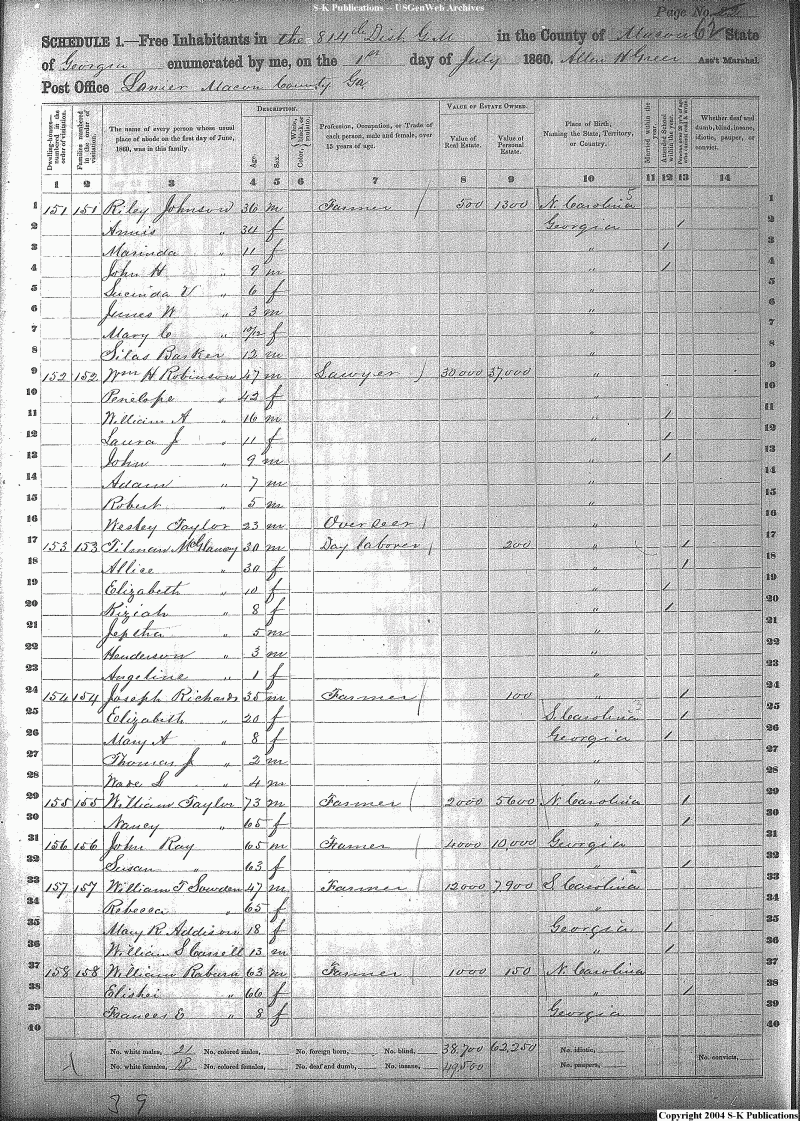 S-K Publications -- USGenWeb Archives
Page No.
SCHEDULE 1.—Free Inhabitants in the 814th Dist G.M in the County of Macon State
of Georgia enumerated by me, on the 1st day of July 1860. Allen H Greer Ass't Marshal
Post Office Lanier Macon County Ga
DESCRIPTION. VALUE OF ESTATE OWNED.
Dwelling-houses—numbered in the order of visitation. Families numbered in the order of visitation. The name of every person whose usual place of abode on the first day of June, 1860, was in this family. Age. Sex. Color, White, black, or mulatto. Profession, Occupation, or Trade of each person, male and female, over 15 years of age. Value of Real Estate. Value of Personal Estate. Place of Birth, Naming the State, Territory, or Country. Married within the year. Attended School within the year. Whether deaf and dumb, blind, insane, idiotic, pauper, or convict.
1 2 3 4 5 6 7 8 9 10 11 12 13 14
1 151 151 Riley Johnson 36 m Farmer 500 1300 N. Carolina 1
2 Annis " 34 f Georgia / 2
3 Marinda " 11 f " / 3
4 John H " 9 m " / 4
5 Lucinda V " 6 f " 5
6 James W " 3 m " 6
7 Mary C " 10/12 f " 7
8 Silas Barker 12 m " 8
9 152 152 Wm H Robinson 47 m Lawyer 30000 37,000 " 9
10 Penelope " 42 f " 10
11 William A " 16 m " / 11
12 Laura J " 11 f " / 12
13 John " 9 m " / 13
14 Adam " 7 m " 14
15 Robert " 5 m " 15
16 Wesley Taylor 23 m Overseer " 16
17 153 153 Tilman McGlancy 30 m Day laborer 200 " / 17
18 Allice " 30 f " / 18
19 Elizabeth " 10 f " / 19
20 Kiziah " 8 f " / 20
21 Jeptha " 5 m " 21
22 Henderson " 3 m " 22
23 Angeline " 1 f " 23
24 154 154 Joseph Richards 35 m Farmer 100 " / 24
25 Elizabeth " 20 f S. Carolina / 25
26 Mary A " 8 f Georgia / 26
27 Thomas J " 2 m " 27
28 Wade L " 4 m " 28
29 155 155 William Taylor 73 m Farmer 2000 5600 N. Carolina / 29
30 Nancy " 65 f " / 30
31 156 156 John Ray 65 m Farmer 4000 10,000 Georgia 31
32 Susan " 63 f " / 32
33 157 157 William F Sowden 47 m Farmer 12000 7,900 S Carolina 33
34 Rebecca " 65 f " 34
35 Mary R Addison 18 f Georgia / 35
36 William S Cassell 13 m " / 36
37 158 158 William Raburn 63 m Farmer 1000 150 N. Carolina 37
38 " 66 f " / 38
39 Frances E " 8 f Georgia 39
40 40
No. white males, 21 No. colored males, No. foreign born, No. blind, 38,700 62,250 No. idiotic,
No. white females, 18 No. colored females, No. deaf and dumb, No. insane, 49500 No. paupers, No. convicts,
39
Copyright 2004 S-K Publications